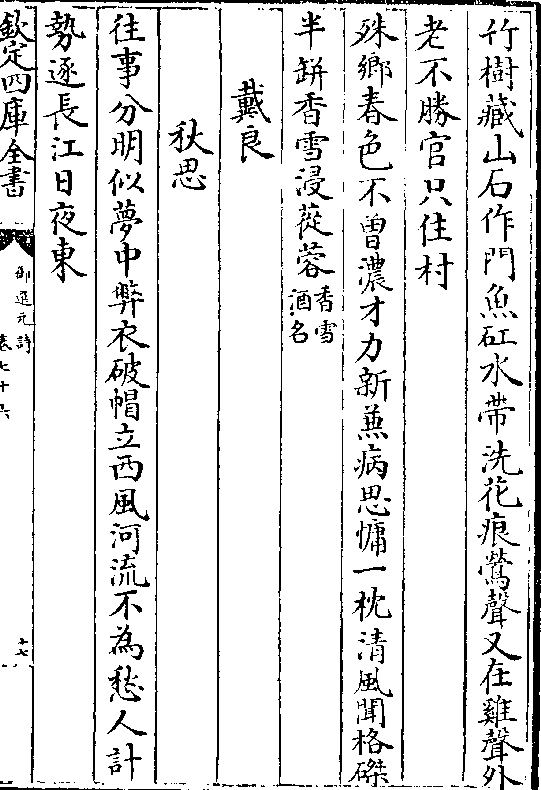 竹樹藏山石作門魚矼水帶洗花痕鶯聲又在雞聲外
老不勝官只住村
殊鄉春色不曾濃才力新兼病思慵一枕清風聞格磔
半缾香雪浸蓯蓉香雪酒名
戴良
秋思
往事分明似夢中弊衣破帽立西風河流不為愁人計
勢逐長江日夜東
欽定四庫全書
御選元詩
卷七十六
十七